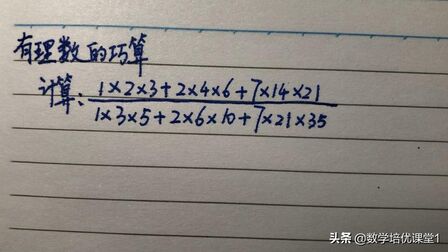 有理数的巧算
计算: 1×2×3+2×4×6+7×14×21
1×3×5+2×6×10+7×21×35
头条 @数学培优课堂1